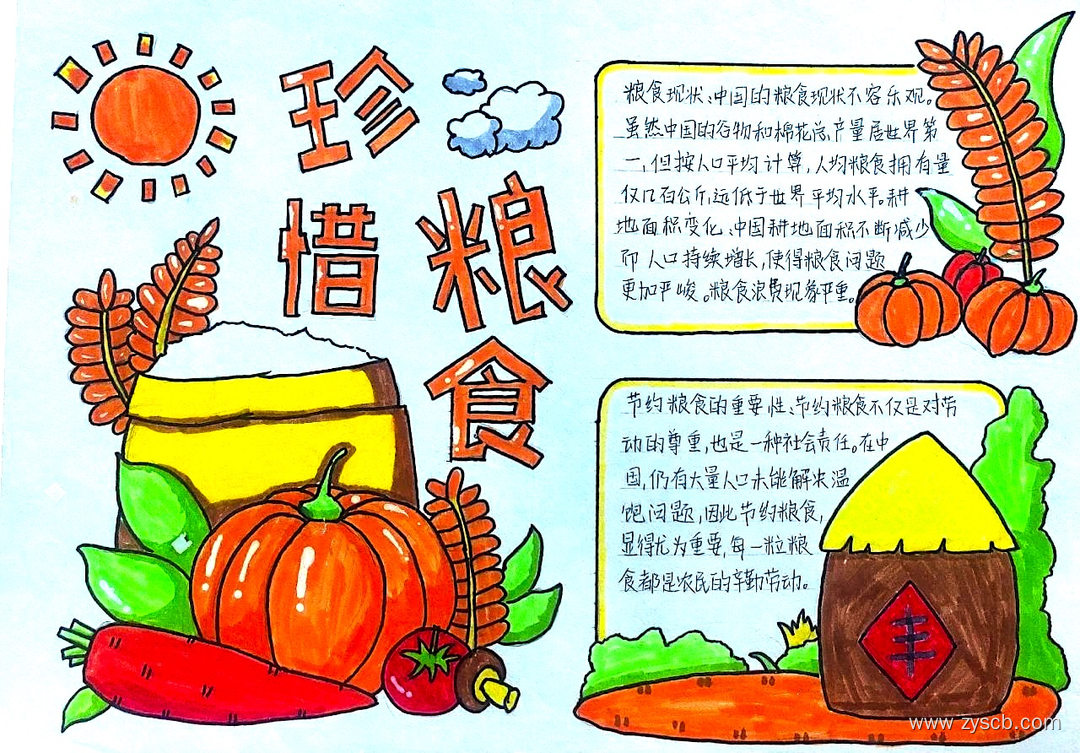 珍惜
粮食
粮食现状:中国的粮食现状不容乐观。
虽然中国的谷物和棉花总产量居世界第
二,但按人口平均计算,人均粮食拥有量
仅几百公斤,远低于世界平均水平。耕
地面积变化:中国耕地面积不断减少
而人口持续增长,使得粮食问题
更加严峻。粮食浪费现象严重。
节约粮食的重要性:节约粮食不仅是对劳
动的尊重,也是一种社会责任。在中
国,仍有大量人口未能解决温
饱问题,因此节约粮食,
显得尤为重要,每一粒粮
食都是农民的辛勤劳动。
丰
www.zyscb.com